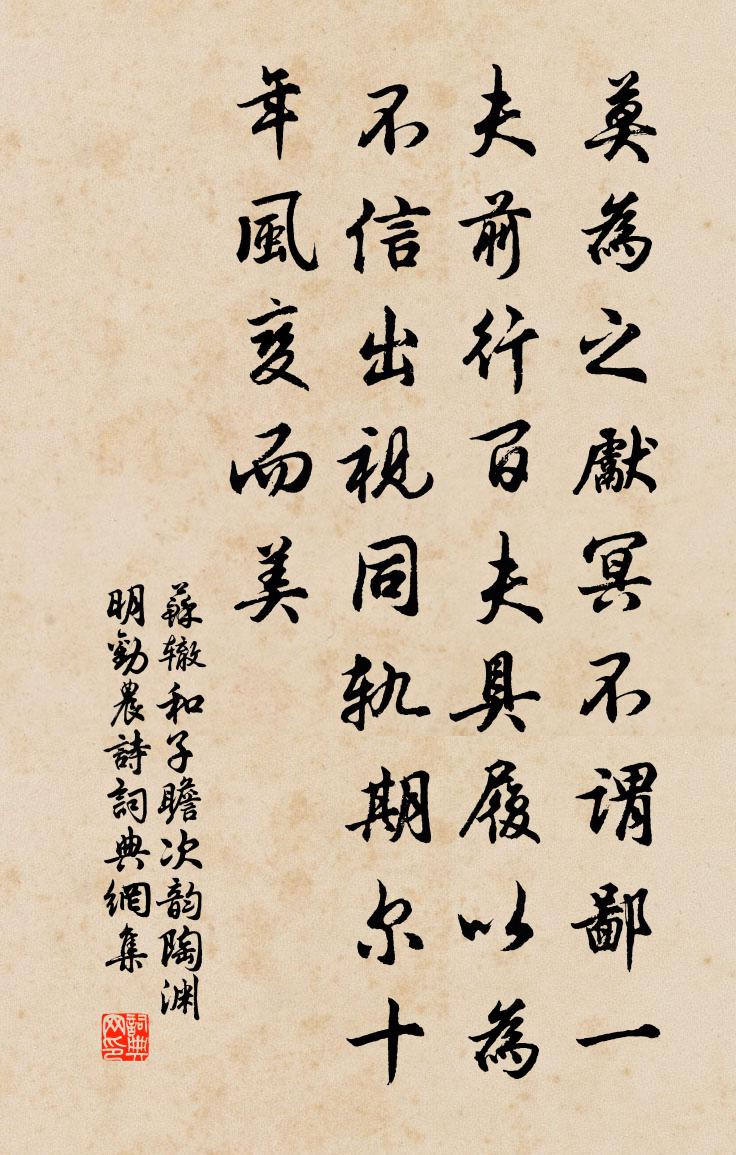 莫為之獻冥不謂鄙一
夫前行百夫具履以為
不信出視同軌期尔十
年風變而美
蘇辙和子瞻次韵陶渊
明勸農詩詞典網集
詞典
网印